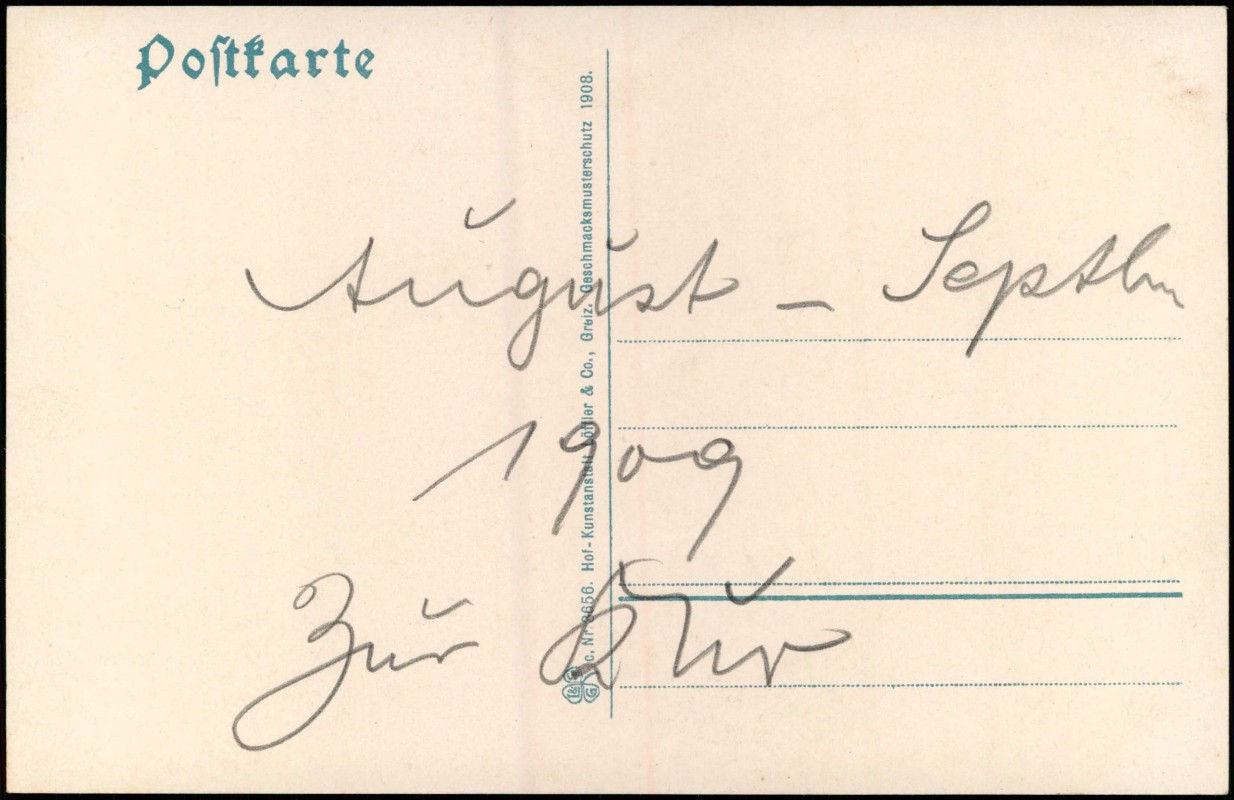 Postkarte
August – Septbr
1909
Zur Kur
c. Nr. 8656. Hof-Kunstanstalt Löffler & Co., Greiz. Geschmacksmusterschutz 1908.